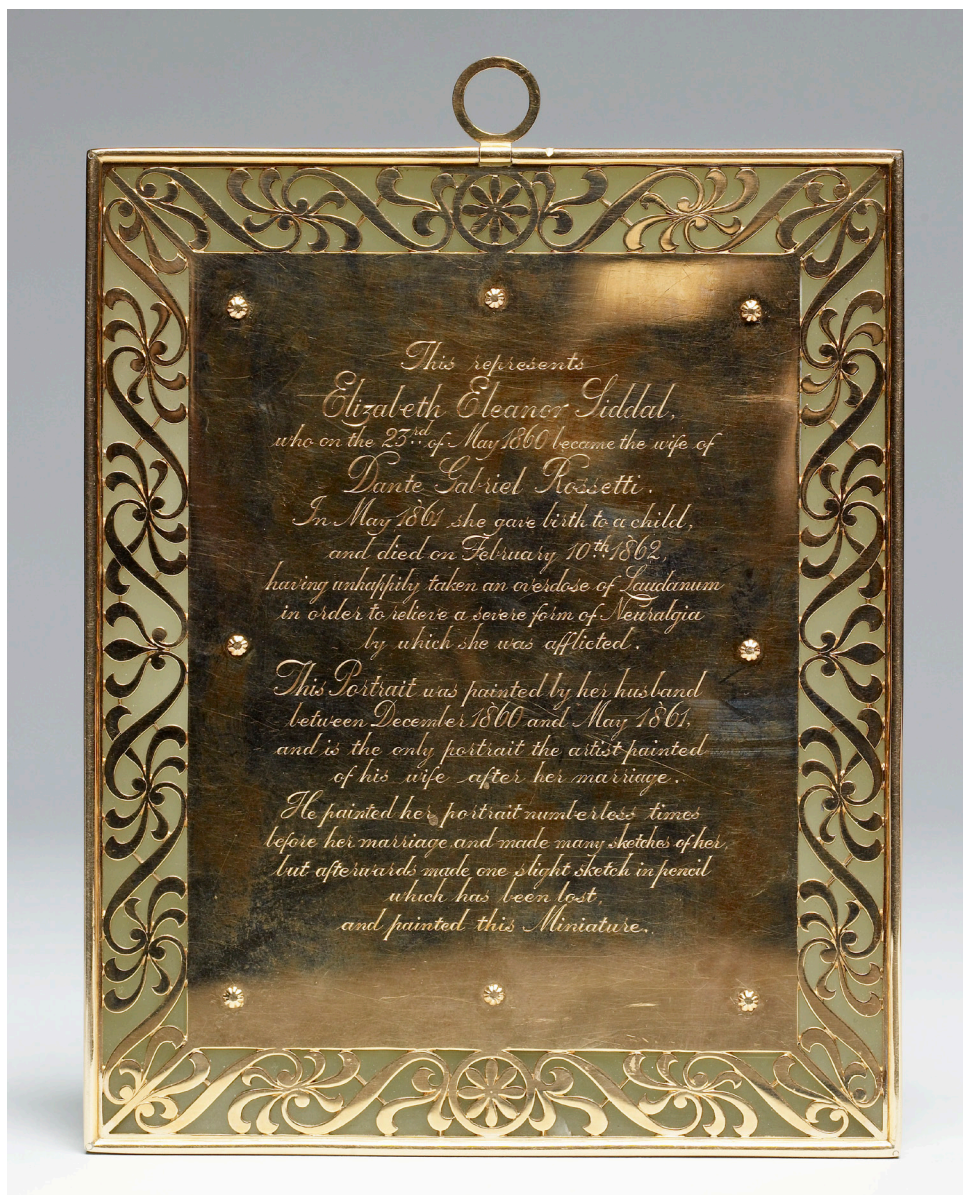 This represents
Elizabeth Eleanor Siddal,
who on the 23rd of May 1860 became the wife of
Dante Gabriel Rossetti.
In May 1861 she gave birth to a child,
and died on February 10th 1862,
having unhappily taken an overdose of Laudanum
in order to relieve a severe form of Neuralgia
by which she was afflicted.
This Portrait was painted by her husband
between December 1860 and May 1861,
and is the only portrait the artist painted
of his wife after her marriage.
He painted her portrait numberless times
before her marriage and made many sketches of her,
but afterwards made one slight sketch in pencil
which has been lost,
and painted this Miniature.